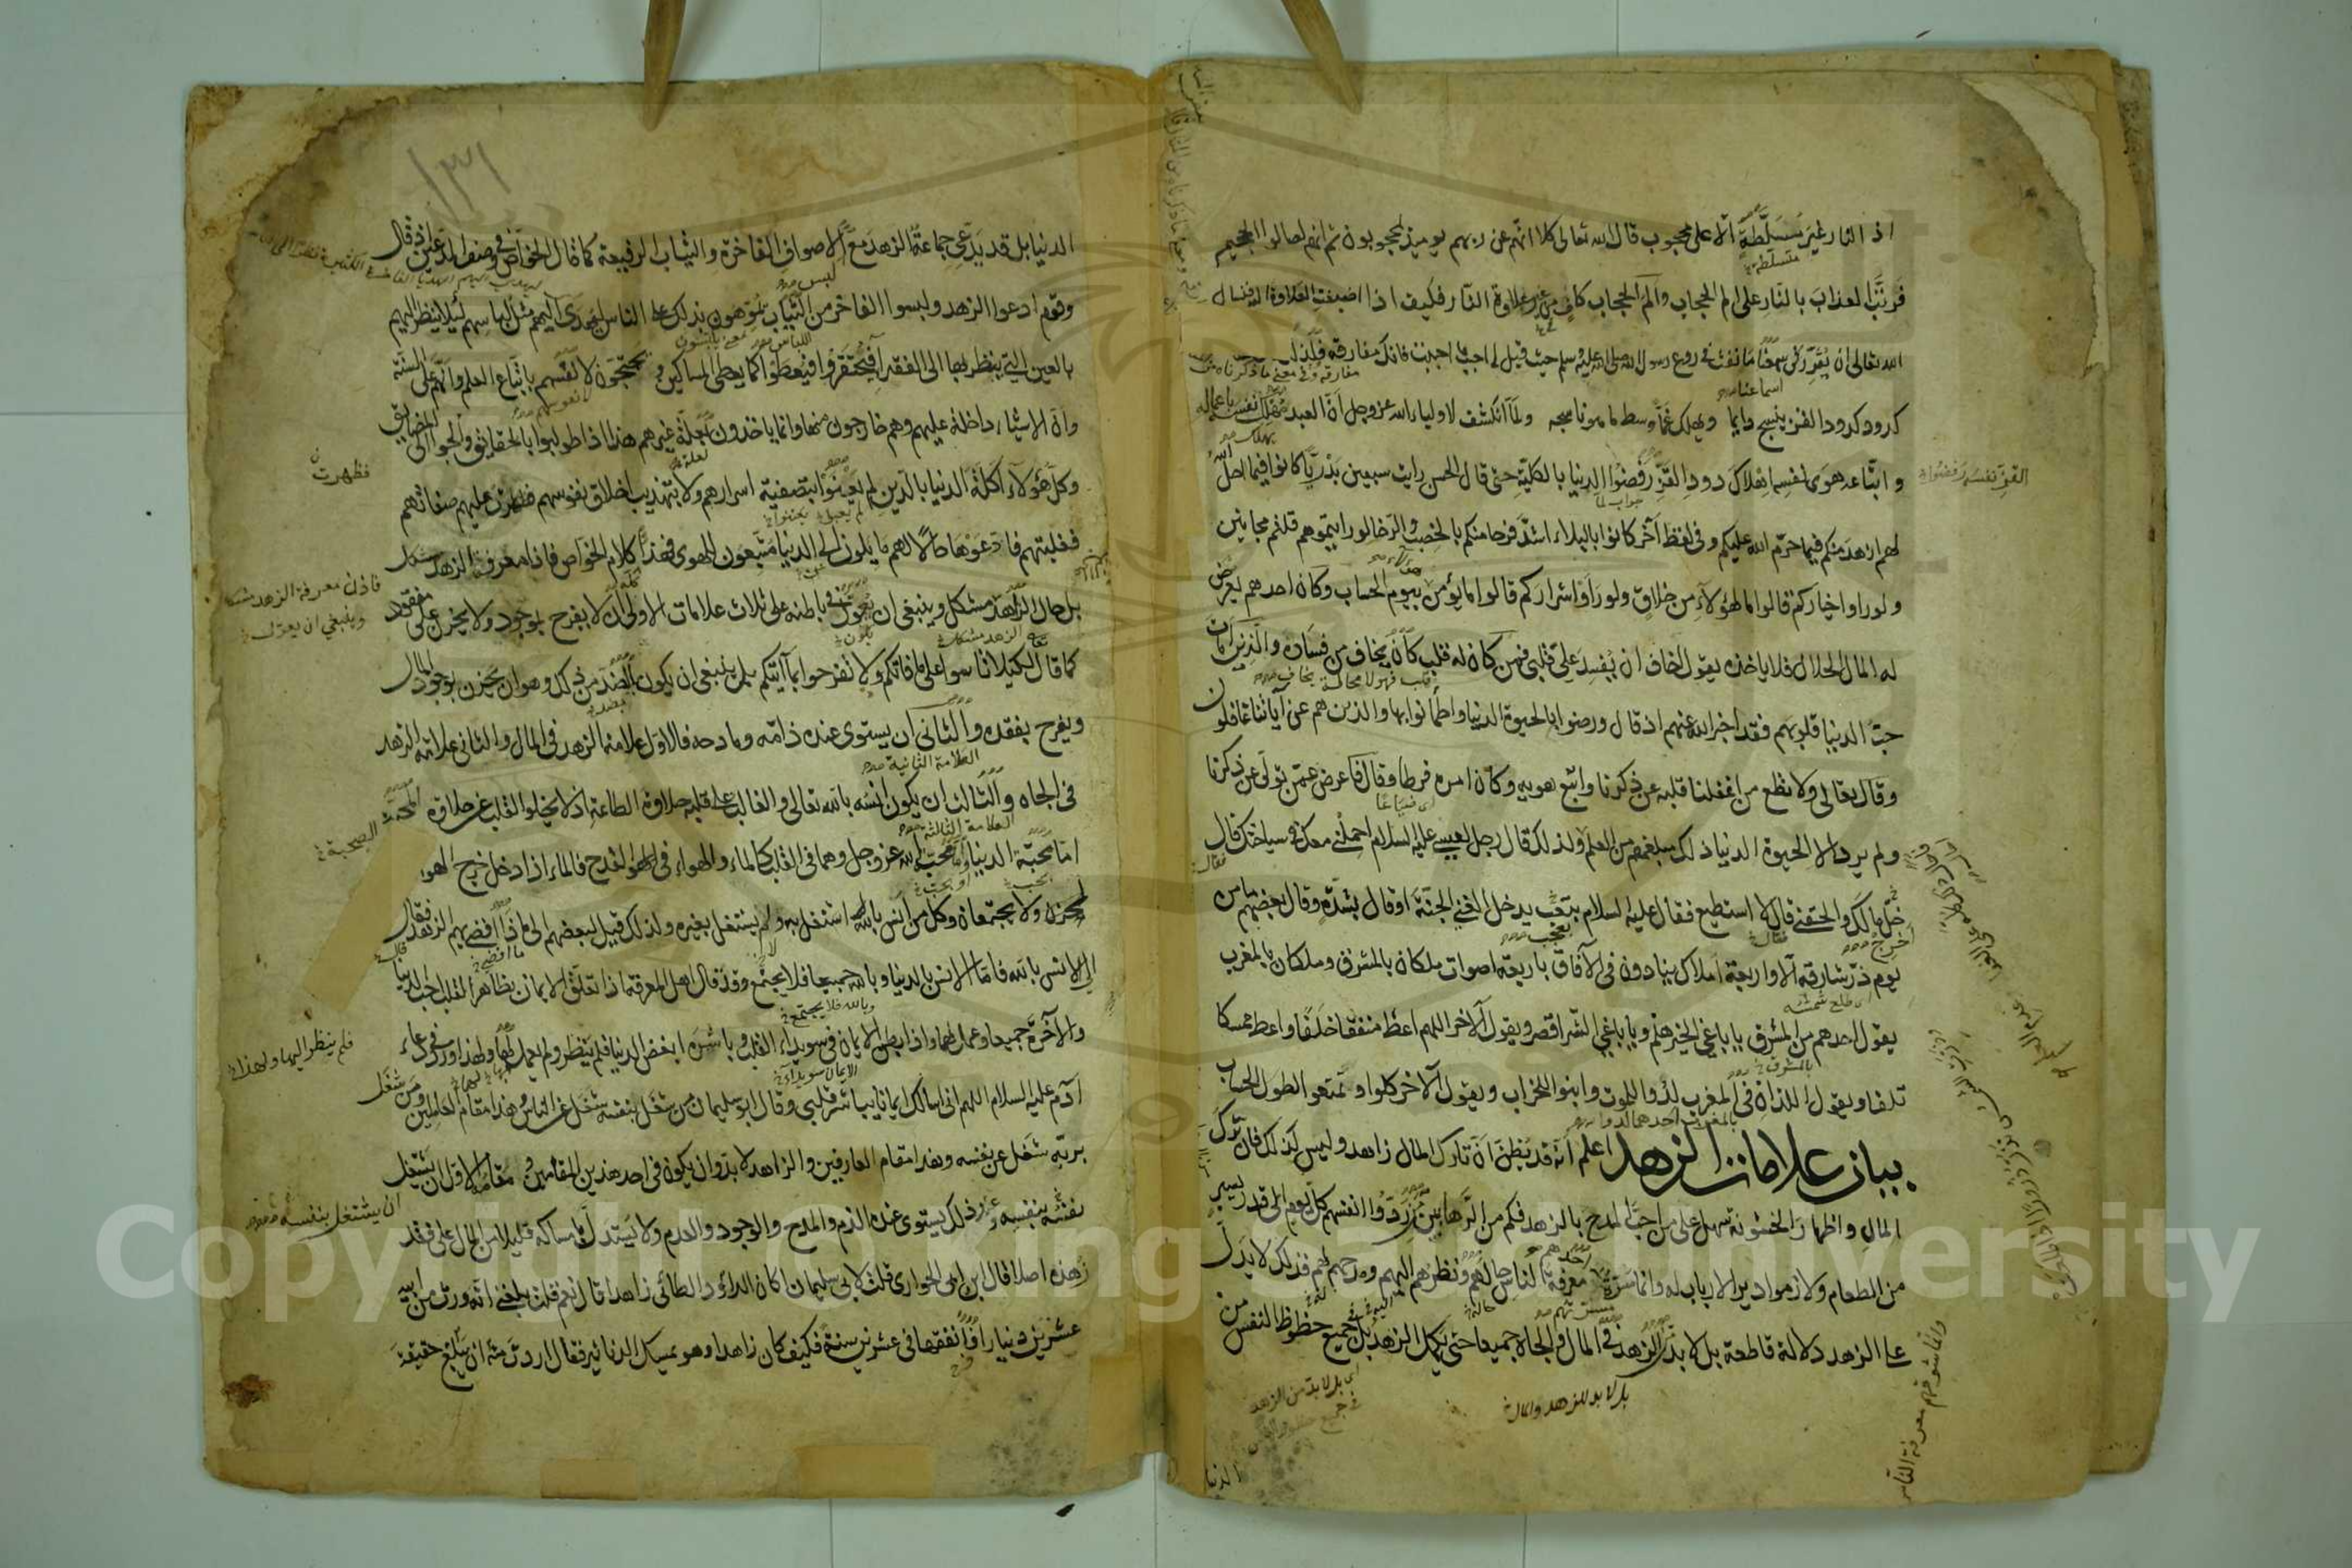 اذ النار غير مسلّطةٍ الّا على محجوب قال الله تعالى كلا انهم عن ربهم يوميذٍ لمحجوبون ثم انهم لصالوا الجحيم
فرتّب العذاب بالنار على الم الحجاب والم الحجاب كافٍ من غير علاوة النار فكيف اذا اضيفت العلاوة اليه فنسال
الله تعالى ان يقرّر فى سمعنا ما نفث فى روع رسول الله صلى الله عليه وسلم حيث قيل له احبب ما احببت فانك مفارقه
كدود كدود القز ينسج دايما ويهلك غمّا وسط ما هو ناسجه ولمّا انكشف لاولياء الله عز وجل انّ العبد مهلك نفسه باعماله
واتباعه هوى نفسه اهلاك دود القزّ رفضوا الدنيا بالكليّة حتى قال الحسن رايت سبعين بدريّا كانوا فيما احل الله
لهم ازهد منكم فيما حرّم الله عليكم وفى لفظ آخر كانوا بالبلاء اشدّ فرحا منكم بالخصب والرخا لو رايتموهم قلتم مجانين
ولو راوا خياركم قالوا ما لهؤلآء من خلاق ولو راوا اشراركم قالوا ما يؤمن بيوم الحساب وكان احدهم يعرض
له المال الحلال فلا ياخذه يقول اخاف ان يفسد علىّ قلبى فمن كان له قلب كان يخاف من فساده والذين امات
حبّ الدنيا قلوبهم فقد اخبر الله عنهم اذ قال ورضوا بالحيوة الدنيا واطمأنوا بها والذين هم عن آياتنا غافلون
وقال تعالى ولا تطع من اغفلنا قلبه عن ذكرنا واتبع هويه وكان امره فرطا وقال فاعرض عمّن تولى عن ذكرنا
ولم يرد الا الحيوة الدنيا ذلك مبلغهم من العلم ولذلك قال رجل لعيسى عليه السلام احملنى معك فى سياحتك قال
خلّ مالك والحقنى قال لا استطيع فقال عليه السلام بتعجّب يدخل الغنى الجنة او قال بشدّة وقال بعضهم ما من
يوم ذرّ شارقه الّا واربعة املاك ينادون فى الآفاق باربعة اصوات ملكان بالمشرق وملكان بالمغرب
يقول احدهم من المشرق يا باغى الخير هلم ويا باغى الشر اقصر ويقول الآخر اللهم اعط منفقا خلفا واعط ممسكا
تلفا ويقول اللذان فى المغرب لدوا للموت وابنوا للخراب ويقول الآخر كلوا وتمتعوا لطول الحساب
بيان علامات الزهد اعلم انّه قد يظنّ انّ تارك المال زاهد وليس كذلك فان ترك
المال واظهار الخشونة سهل على من احبّ المدح بالزهد فكم من الرهابين من ردّوا انفسهم كل يوم الى قدر يسير
من الطعام ولازموا ديرا لا باب له وانما مسرّة احدهم معرفة الناس حاله ونظرهم اليهم ومدحهم لهم فذلك لا يدل
على الزهد دلالة قاطعة بل لا بد من الزهد فى المال والجاه جميعا حتى يكمل الزهد بل جميع حظوظ النفس من
بل لا بد للزهد والمال
اى بل لا بد من الزهد
فى جميع حظوظ النفس
الدنيا
القزّ نفسه رفضوا
١٣١
الدنيا بل قد يدّعى جماعة الزهد مع الاصواف الفاخرة والثياب الرفيعة كما قال الخواص فى وصف المدّعين اذ قال
وقوم ادعوا الزهد ولبسوا الفاخر من الثياب يموّهون بذلك على الناس ليهدى اليهم مثل لباسهم لئلا ينظر اليهم
بالعين التى ينظر بها الى الفقراء فيحتقروا فيعطوا كما يعطى المساكين ويحتجّون لانفسهم باتّباع العلم وانّهم على السنّة
وانّ الاشياء داخلة عليهم وهم خارجون منها وانما ياخذون بعلّة غيرهم هذا اذا طولبوا بالحقايق والجوا الى المضايق
وكلّ هؤلآء اكلة الدنيا بالدين لم يعنوا بتصفية اسرارهم ولا بتهذيب اخلاق نفوسهم فظهرت عليهم صفاتهم
فغلبتهم فادّعوها حالًا لهم مايلون الى الدنيا متّبعون للهوى فهذا كلام الخواص فاذا معرفة الزهد مشكل
بل حال الزاهد مشكل وينبغى ان يعوّل فى باطنه على ثلاث علامات الاولى ان لا يفرح بموجود ولا يحزن على مفقود
كما قال لكيلا تاسوا على ما فاتكم ولا تفرحوا بما آتيكم بل ينبغى ان يكون بالضدّ من ذلك وهو ان يحزن بوجود المال
ويفرح بفقده والثانى ان يستوى عنده ذامّه ومادحه فالاول علامة الزهد فى المال والثانى علامة الزهد
فى الجاه والثالث ان يكون انسه بالله تعالى والغالب على قلبه حلاوة الطاعة اذ لا يخلوا القلب عن حلاوة المحبّة
امّا محبّة الدنيا وامّا محبّة الله عز وجل وهما فى القلب كالماء والهواء فى القدح فالماء اذا دخل خرج الهوا
ولا يجتمعان وكل من انس بالله اشتغل به ولم يشتغل بغيره ولذلك قيل لبعضهم الى ما ذا افضى بهم الزهد فقال
الى الانس بالله فامّا الانس بالدنيا وبالله جميعا فلا يجتمع وقد قال اهل المعرفة اذا تعلّق الايمان بظاهر القلب احب الدنيا
والآخرة جميعا وعمل لهما واذا بطن الايمان فى سويداء القلب وباشره ابغض الدنيا فلم ينظر ولم يعمل لها ولهذا ورد فى دعاء
آدم عليه السلام اللهم انى اسالك ايمانا يباشر قلبى وقال ابو سليمان من شغل بنفسه شغل عن الناس وهذا مقام العاملين ومن شغل
بربّه شغل عن نفسه وهذا مقام العارفين والزاهد لا بدّ وان يكون فى احد هذين المقامين ومقامه الاول ان يشتغل
نفسه بنفسه وعند ذلك يستوى عنده الذم والمدح والوجود والعدم ولا يستدلّ بامساكه قليلا من المال على فقد
زهده اصلا قال ابن ابى الحوارى قلت لابى سليمان اكان داود الطائى زاهدا قال نعم قلت بلغنى انّه ورث من ابيه
عشرين دينارا فانفقها فى عشرين سنة فكيف كان زاهدا وهو يمسك الدنانير فقال اردت منه ان يبلغ حقيقة
فظهرت
فاذن معرفة الزهد مشكل
وينبغى ان يعوّل
الصحبة
فلم ينظر اليها ولهذا
ان يشتغل بنفسه
Copyright © King Saud University